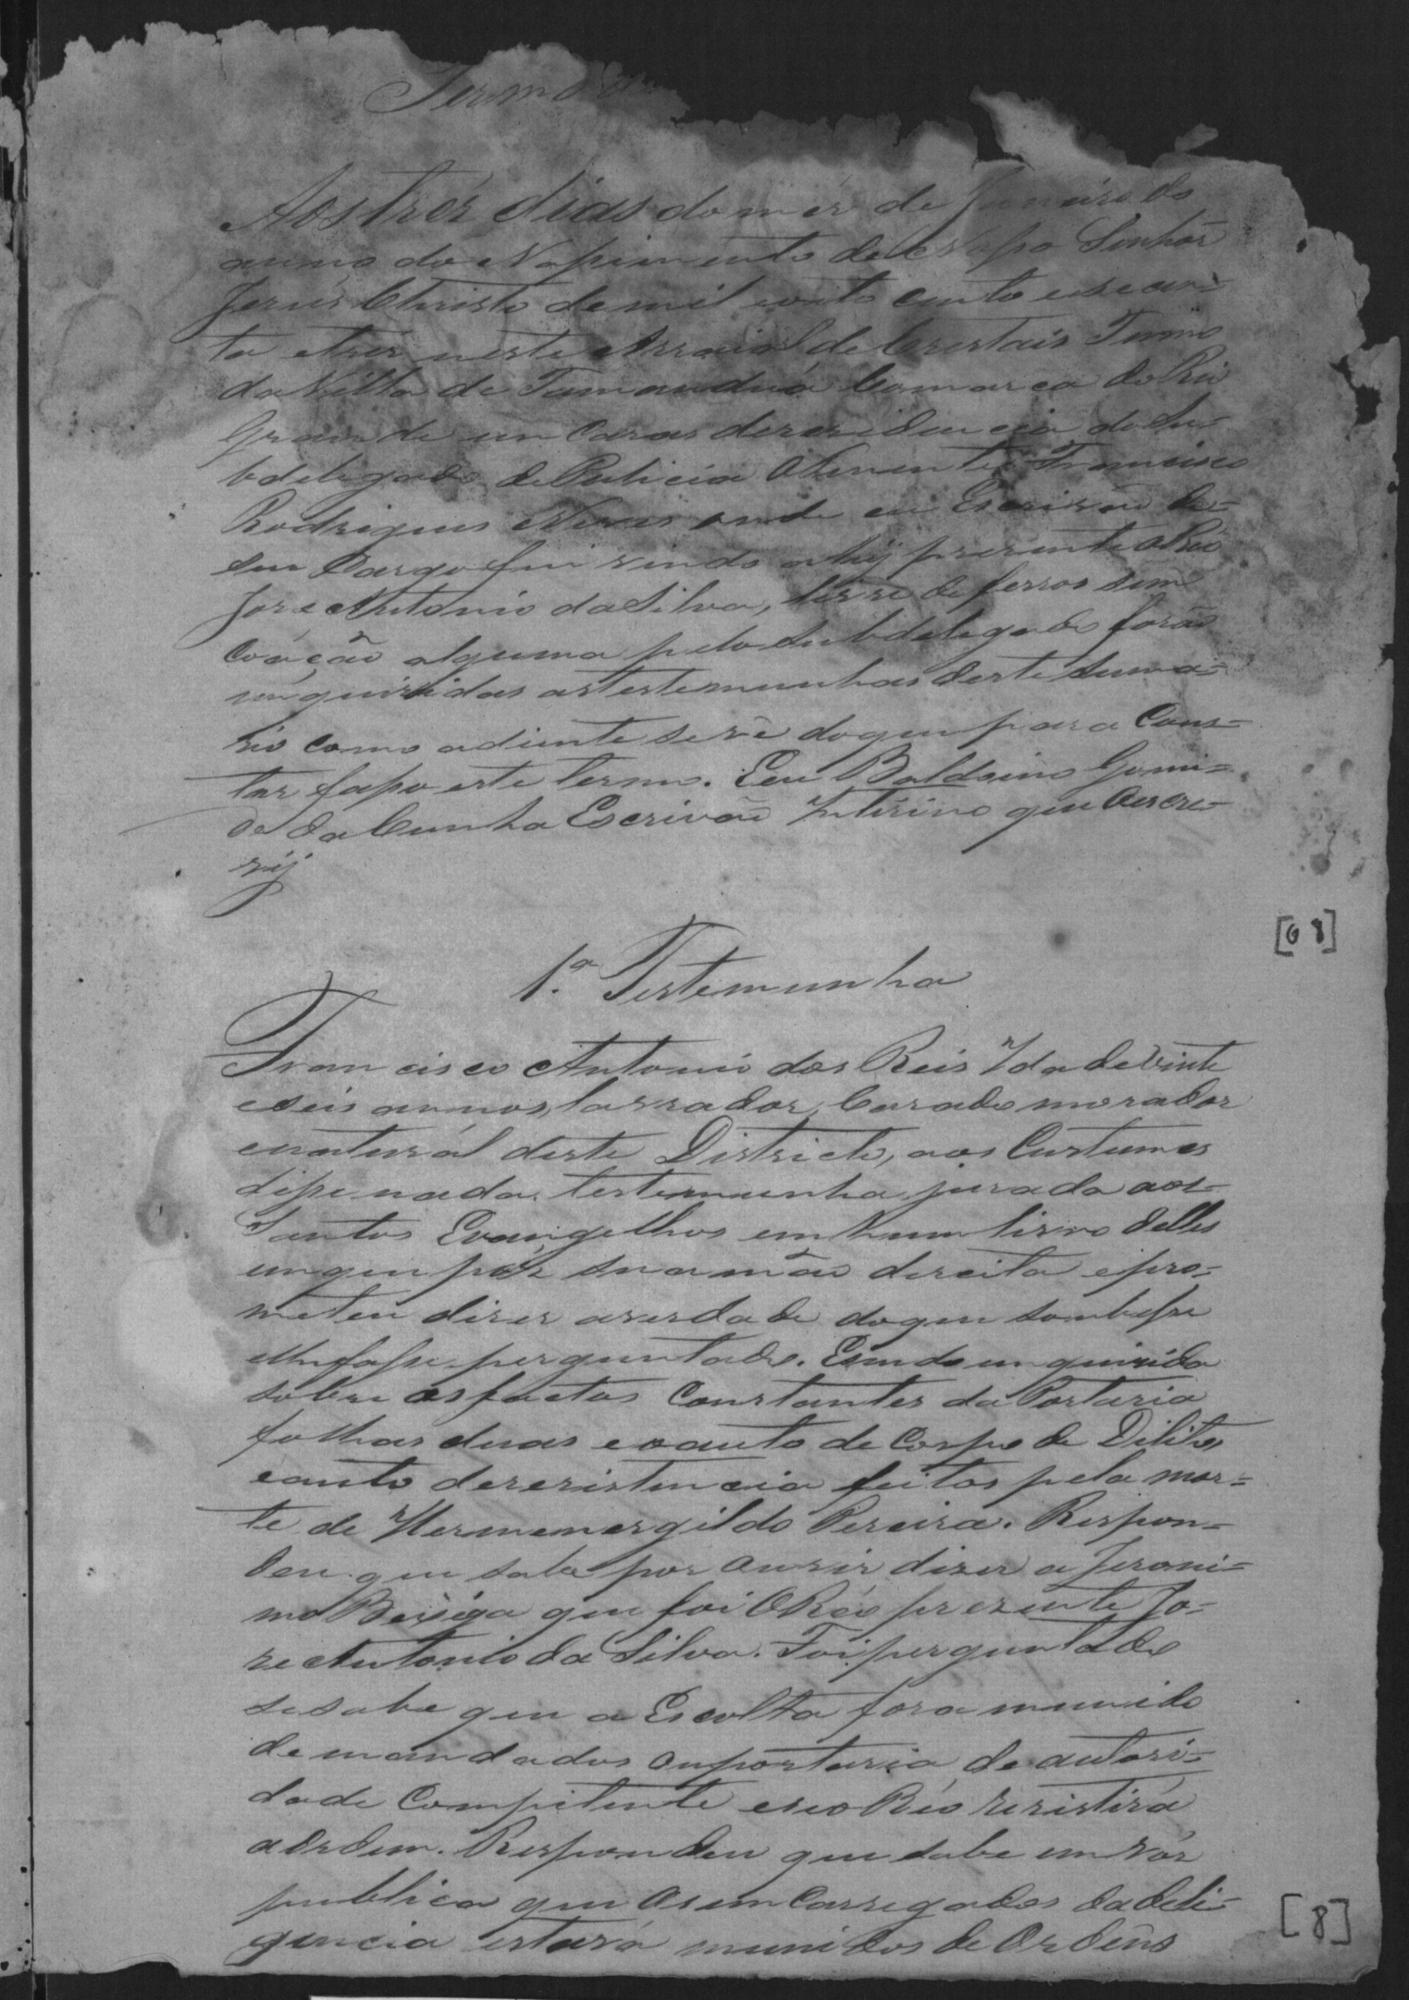 Termo d
Aos trez dias do mez de Janeiro do
anno do Nascimento de Nosso Senhor
Jezus Christo de mil oito cento e secen=
ta e trez neste Arraial de Cristais Termo
da Villa de Tamanduá Comarca do Rio
Grande em Cazas derezidencia do Su=
bdelegado de Policia o Tenente Francisco
Rodrigues Neves onde eu Escrivão de=
seu Cargo fui vindo ahij prezente o Reo
Joze Antonio da Silva, livre de ferros sem
coação alguma pelo Subdelegado forão
inquiridas as testemunhas deste Suma=
rio como adiente se vê doque para Cons=
tar faço este termo. Eeu Baldoino Gomi=
de da Cunha Escrivão Interino que o escre=
vij
1.a Testemunha
Francisco Antonio dos Reis Idade vinte
e seis annos, lavrador, Cazado morador
enaturál deste Districto, aos Custumes
disse nada. testemunha jurada aos=
Santos Evangelhos em hum livro delles
emque pôz sua mão direita epro=
meteu dizer averdade doque soubesse
elhefosse perguntado. Esendo enquirida
sobre osfactos Constantes da Portaria
folhas duas e oauto de Corpo de Dilito
eauto derezistencia feitos pela mor=
te de Hermenergildo Pereira. Respon=
deu que sabe por ouvir dizer a Jeroni=
mo Bexiga que foi O Réo prezente Jo=
ze Antonio da Silva. Foi perguntado
sesabe que a Escolta fora munida
de mandados ouportaria de autori=
dade Compitente eseo Reo rezistira
aordem. Respondeu que sabe em vóz
publica que osemcarregados dadeli=
gencia estavá munidos de Ordens
[08]
[8]